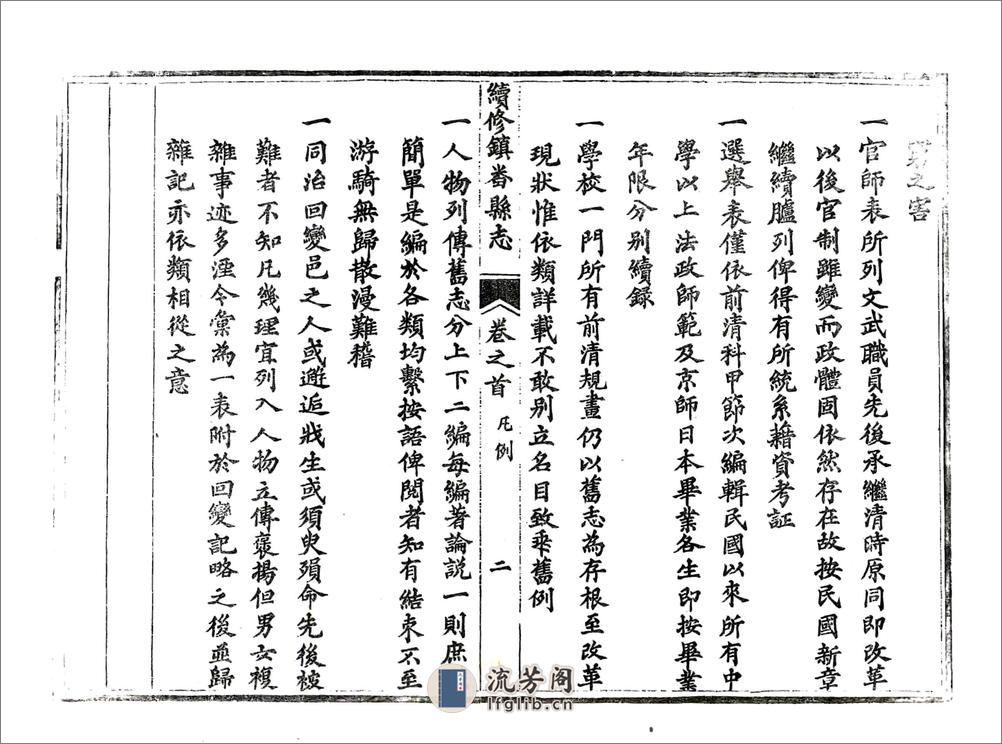 之害
一官師表所列文武職員先後承繼清時原同即改革
以後官制雖變而政體固依然存在故按民國新章
繼續臚列俾得有所統系藉資考証
一選舉表僅依前清科甲節次編輯民國以來所有中
學以上法政師範及京師日本畢業各生即按畢業
年限分別續録
一學校一門所有前清規畫仍以舊志為存根至改革
現狀惟依類詳載不敢別立名目致乘舊例
續修鎮番縣志
卷之首
凡例
二
一人物列傳舊志分上下二編每編著論説一則庶
簡單是編於各類均繫按語俾閲者知有結束不至
游騎無歸散漫難稽
一同治回變邑之人或邂逅戕生或須臾殞命先後被
難者不知凡幾理宜列入人物立傳褒揚但男女複
雜事迹多湮今彙為一表附於回變記略之後並歸
雜記亦依類相從之意
流芳阁
lfglib.cn